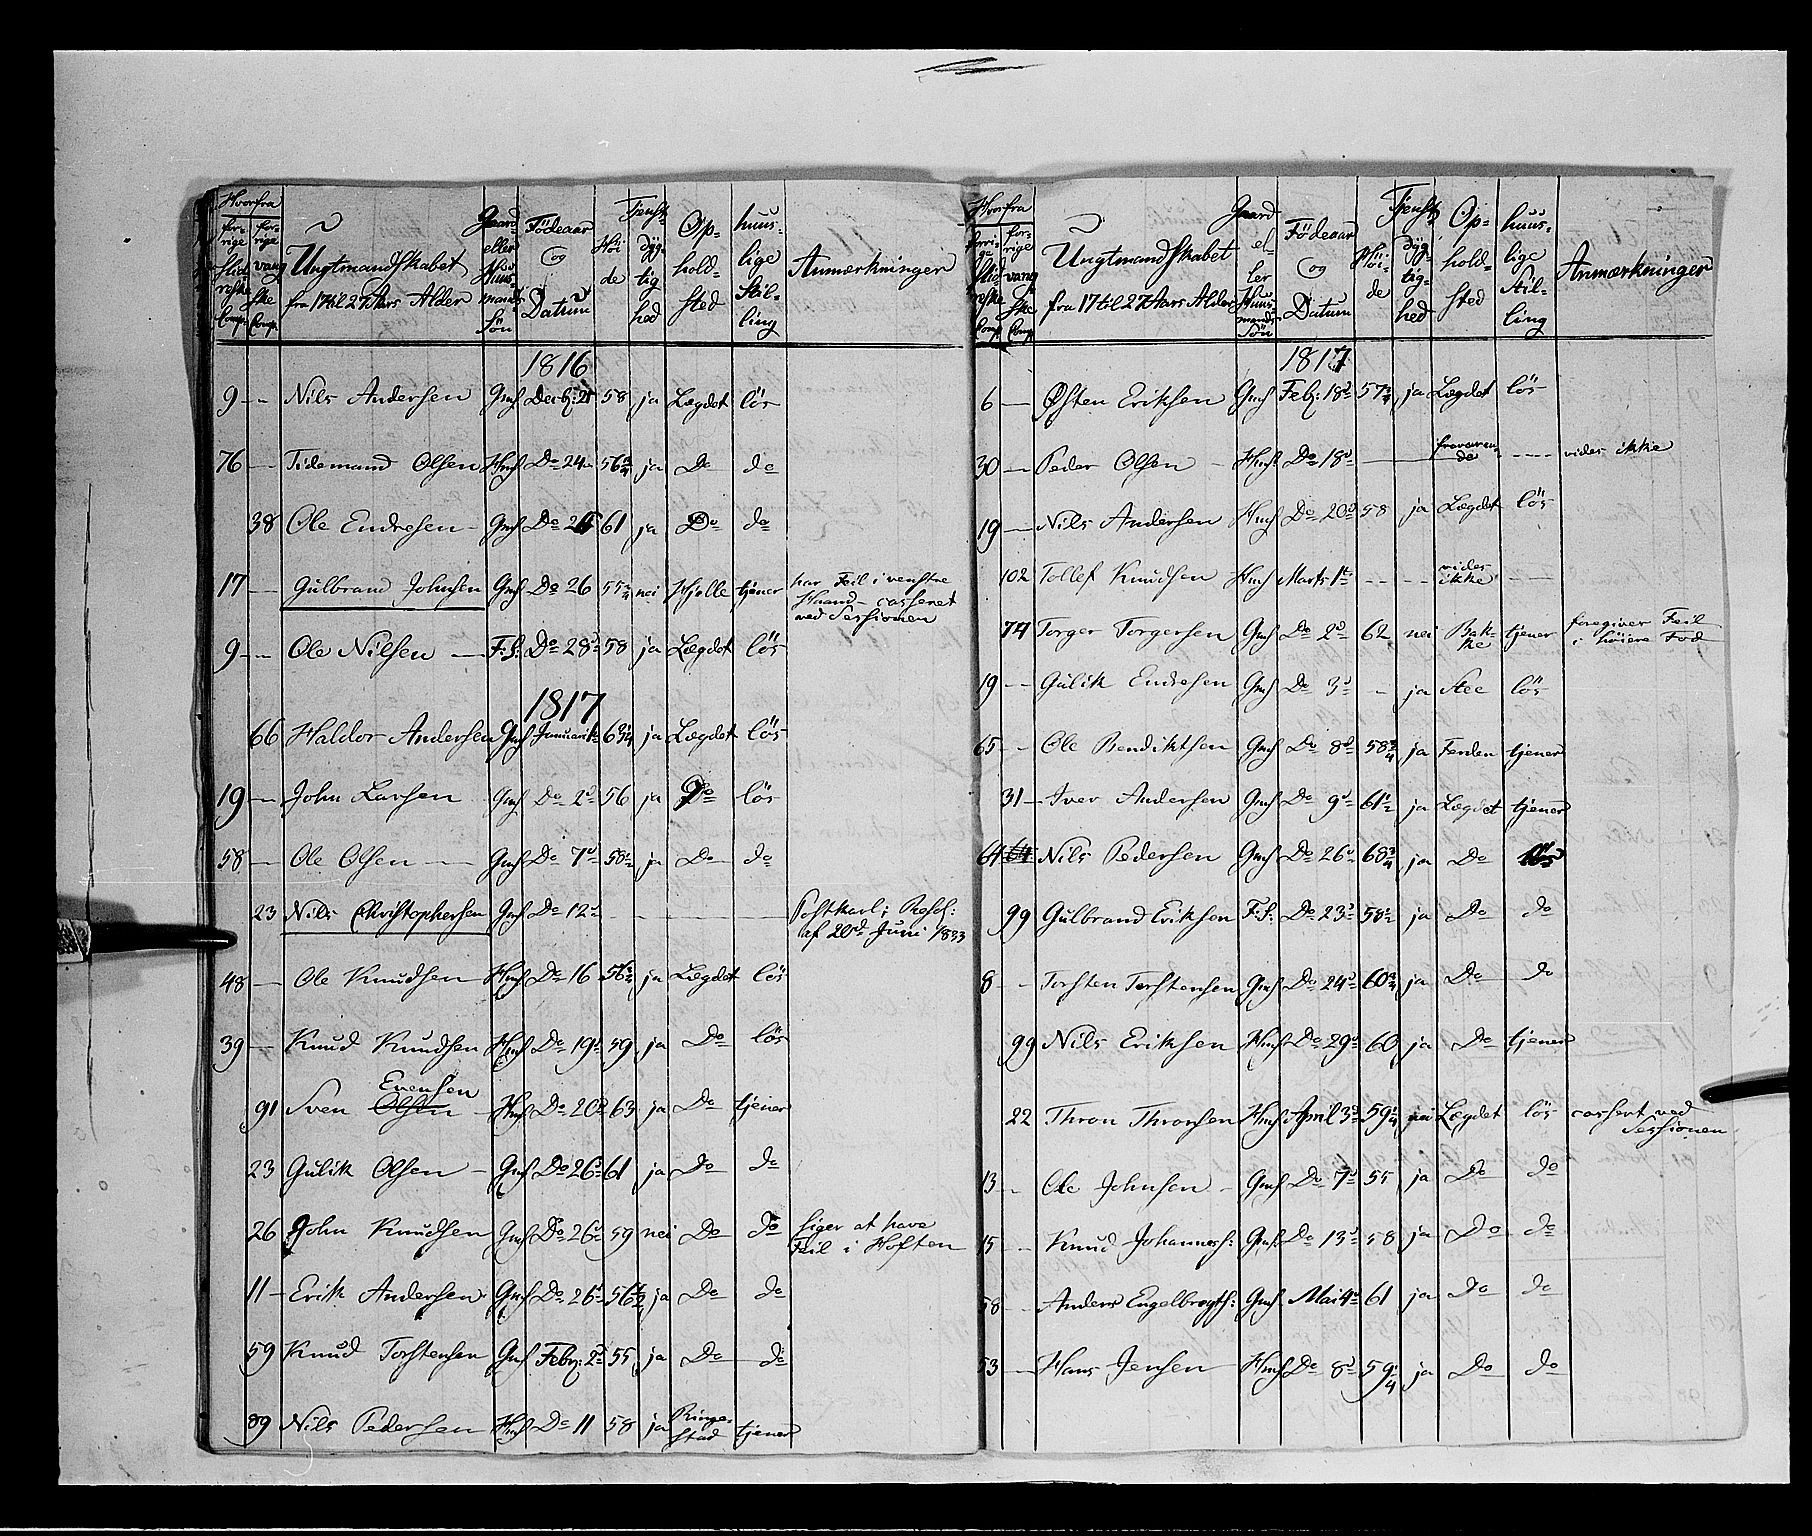 Hvorfra
for- rige Slid- reske Comp: | for- rige vang ske Comp. | Ungtmandskabet fra 17 til 27 Aars Alder | Gaard eller Huus mands Sön | Födeaar og Datum | Höi- de | Tjenst- dyg- tig hed | Op- hold- sted | huus- lige Stil- ling | Anmærkninger
1816
9 — Nils Andersen Gmf Decbr: 21 58 ja Lægdet lös
76 — Tidemand Olsen Hmf Do 24 56 3/4 ja Do do
38 Ole Endresen Gmf Do 61 ja Do do
17 — Gulbrand Johnsen Gmf Do 26 nei Hjelle tjener har Feil i venstre
Haand – casseret
ved Sessionen
9 — Ole Nilsen — F.S. Do 28d 58 ja Lægdet lös
1817
66 Haldor Andersen Gmf Januari ja Lægdet lös
19 — John Larsen Gmf Do 2d 56 ja Do lös
58 — Ole Olsen — Gmf Do 7d 58 1/2 ja Do do
23 Nils Christophersen Gmf Do 12d — — — Postkarl; Resol:
af 20de Juni 1833
48 — Ole Knudsen Hmf Do 16 ja Lægdet lös
39 — Knud Knudsen Hmf Do 19d 59 ja Do lös
Evensen
91 Sven Olsen Hmf Do 20d 63 ja Do tjener
23 Gulik Olsen — Gmf Do 26d 61 ja Do do
26 John Knudsen Gmf Do 26d 59 nei Do do siger at have
Feil i Hoften
11 — Erik Andersen Gmf Do 26d 56 1/2 ja Do do
59 Knud Torstensen Gmf Febr: 2d 55 ja Do do
89 Nils Pedersen Hmf Do 11 58 ja Ringe- stad tjener
Hvorfra
forri- ge Slid- reske Comp | for- rige vang ske Comp | Ungtmandskabet fra 17 til 27 Aars Alder | Gaard el- ler Huus mands Sön | Födeaar og Datum | Höi- de | Tjenst- dyg- tig- hed | Op- hold- sted | huus- lige Stil- ling | Anmærkninger
1817
6 — Østen Eriksen Gmf Febr: 18d 57 3/4 ja Lægdet lös
30 — Peder Olsen — Hmf Do 18d — fraværen- de — vides ikke
19 — Nils Andersen Hmf Do 20d 58 ja Lægdet lös
102 Tollef Knudsen Hmf Marts 1te — — vides ikke —
74 Torger Torgersen Gmf Do 2d 62 nei Bak- ke tjener foregiver Feil
i höiere Fod
19 — Gulik Endresen Gmf Do 3d — ja Stee lös
65 — Ole Bendiktsen Gmf Do 8d 58 3/4 ja Ferden tjener
31 — Iver Andersen Gmf Do 9d 61 1/2 ja Lægdet tjener
64 64 Nils Pedersen Gmf Do 26d 68 3/4 ja Do lös
99 Gulbrand Eriksen F.S. Do 23d 58 1/2 ja Do do
8 — Torsten Torstensen Gmf Do 24d 60 3/4 ja Do do
99 Nils Eriksen Hmf Do 29d 60 ja Do tjener
22 Thron Thronsen Hmf April 3d 59 1/4 nei Lægdet lös cassert ved
Sessionen
13 — Ole Johnsen — Gmf Do 7d 55 ja Do do
15 — Knud Johanness: Gmf: Do 13d 58 ja Do do
58 — Anders Engelbregts: Gmf Mai 4d 61 ja Do do
53 — Hans Jensen Hmf Do 8d 59 1/4 ja Do do